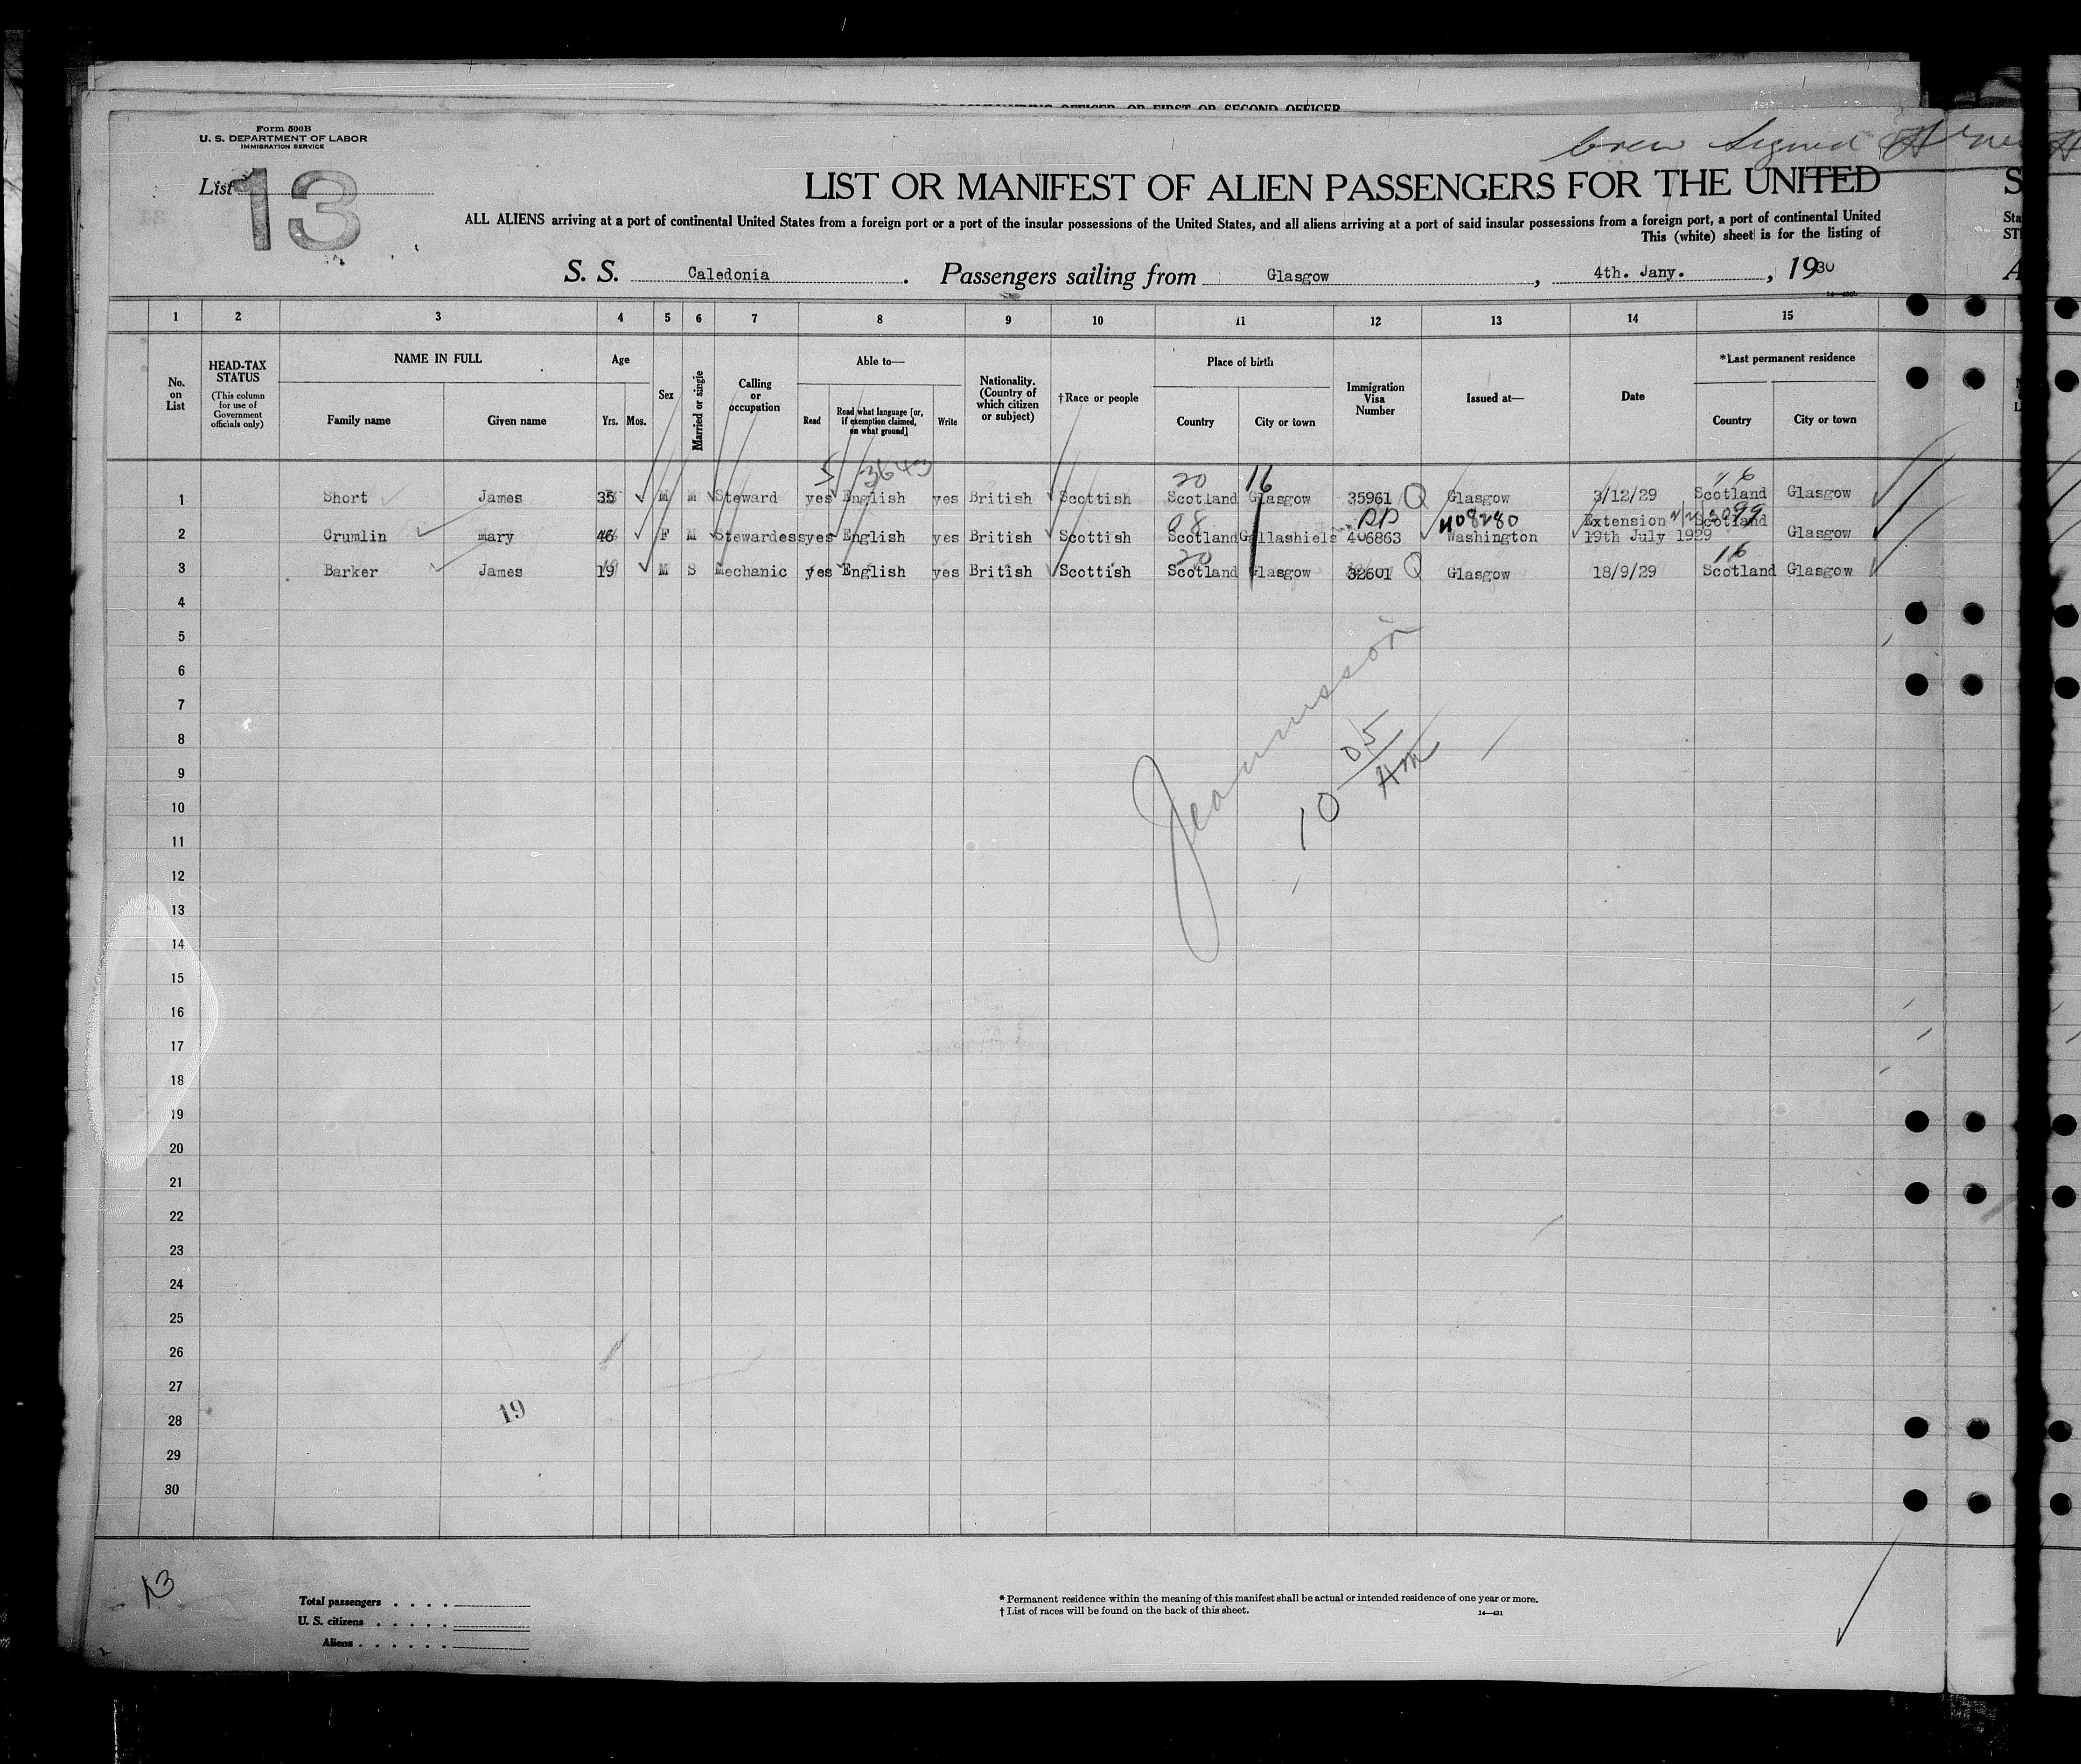 Form 500B
U. S. DEPARTMENT OF LABOR
IMMIGRATION SERVICE
Crew Signed
List 13
LIST OR MANIFEST OF ALIEN PASSENGERS FOR THE UNITED
ALL ALIENS arriving at a port of continental United States from a foreign port or a port of the insular possessions of the United States, and all aliens arriving at a port of said insular possessions from a foreign port, a port of continental United
This (white) sheet is for the listing of
S. S. Caledonia. Passengers sailing from Glasgow, 4th. Jany., 1930
1 2 3 4 5 6 7 8 9 10 11 12 13 14 15
No. on List
HEAD-TAX STATUS (This column for use of Government officials only)
NAME IN FULL
Family name Given name
Age
Yrs. Mos.
Sex
Married or single
Calling or occupation
Able to—
Read Read what language [or, if exemption claimed, on what ground] Write
Nationality. (Country of which citizen or subject)
†Race or people
Place of birth
Country City or town
Immigration Visa Number
Issued at—
Date
*Last permanent residence
Country City or town
5 3643 20 16
1 Short James 35 M M Steward yes English yes British Scottish Scotland Glasgow 35961 Q Glasgow 3/12/29 Scotland Glasgow
PP 408280 Extension
2 Crumlin mary 46 F M Stewardess yes English yes British Scottish Scotland Gallashiels 406863 Washington 19th July 1929 Scotland Glasgow
20 16
3 Barker James 19 M S Mechanic yes English yes British Scottish Scotland Glasgow 32601 Q Glasgow 18/9/29 Scotland Glasgow
4
5
6
7
8
9
10
11
12
13
14
15
16
17
18
19
20
21
22
23
24
25
26
27
28
29
30
10 05 AM
19
13
Total passengers . . . .
U. S. citizens . . . . .
Aliens . . . . . .
* Permanent residence within the meaning of this manifest shall be actual or intended residence of one year or more.
† List of races will be found on the back of this sheet.
14—431